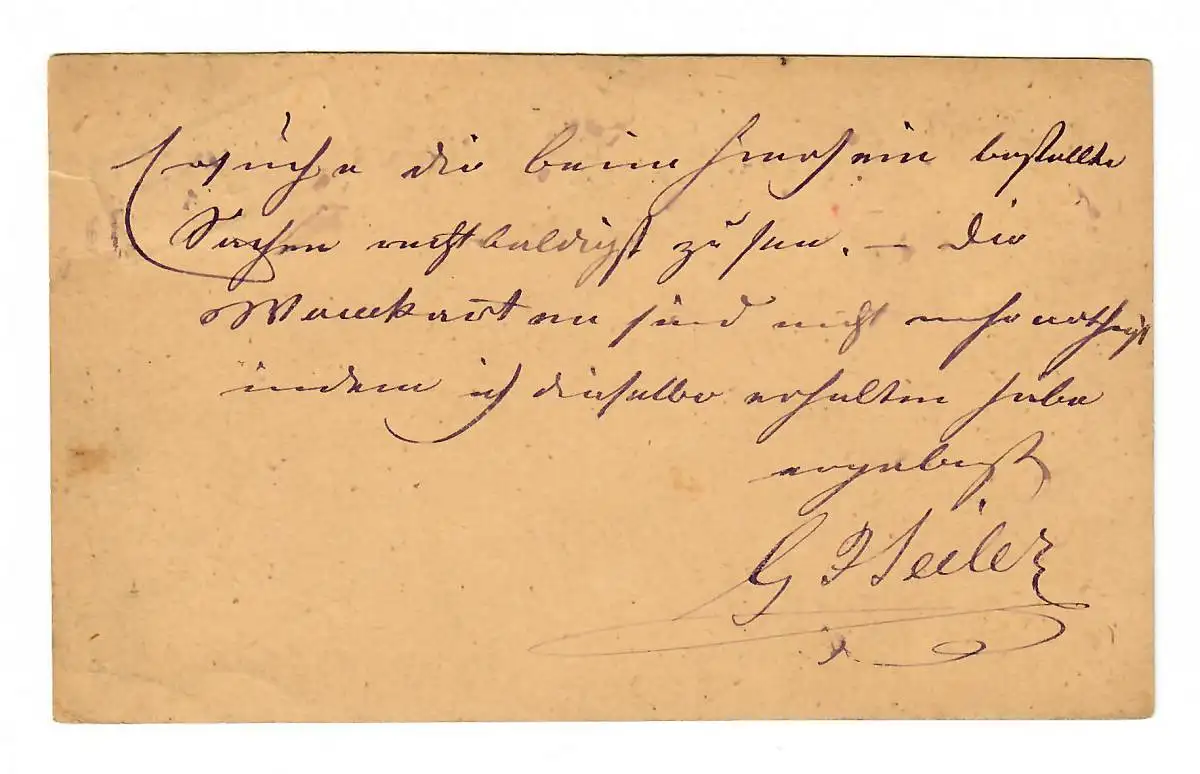 Ersuche die beim Hiersein bestellte
Sachen recht baldigst zu sen. — Die
sind nicht mehr nöthig
indem ich dieselbe erhalten habe
ergebenst
G